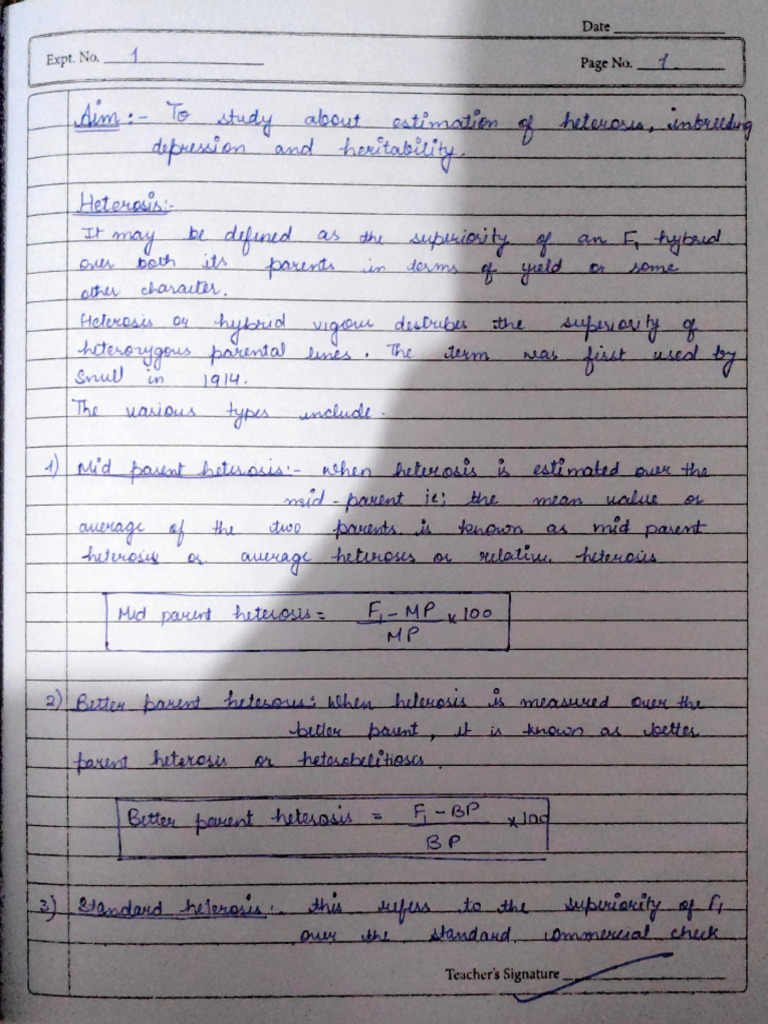 Date
Expt. No. 1
Page No. 1
Aim :- To study about estimation of heterosis, inbreeding
depression and heritability.
Heterosis:-
It may be defined as the superiority of an F1 hybrid
over both its parents in terms of yield or some
other character.
Heterosis or hybrid vigour describes the superiority of
heterozygous parental lines. The term was first used by
Snull in 1914.
The various types include.
1) Mid parent heterosis:- when heterosis is estimated over the
mid-parent ie; the mean value or
average of the two parents. is known as mid parent
heterosis or average heteroses or relative heterosis
Mid parent heterosis = F1 - MP x 100
MP
2) Better parent heterosis: When heterosis is measured over the
better parent, it is known as better
parent heterosis or heterobelitiosis.
Better parent heterosis = F1 - BP x 100
BP
3) Standard heterosis:- this refers to the superiority of F1
over the standard commercial check
Teacher's Signature